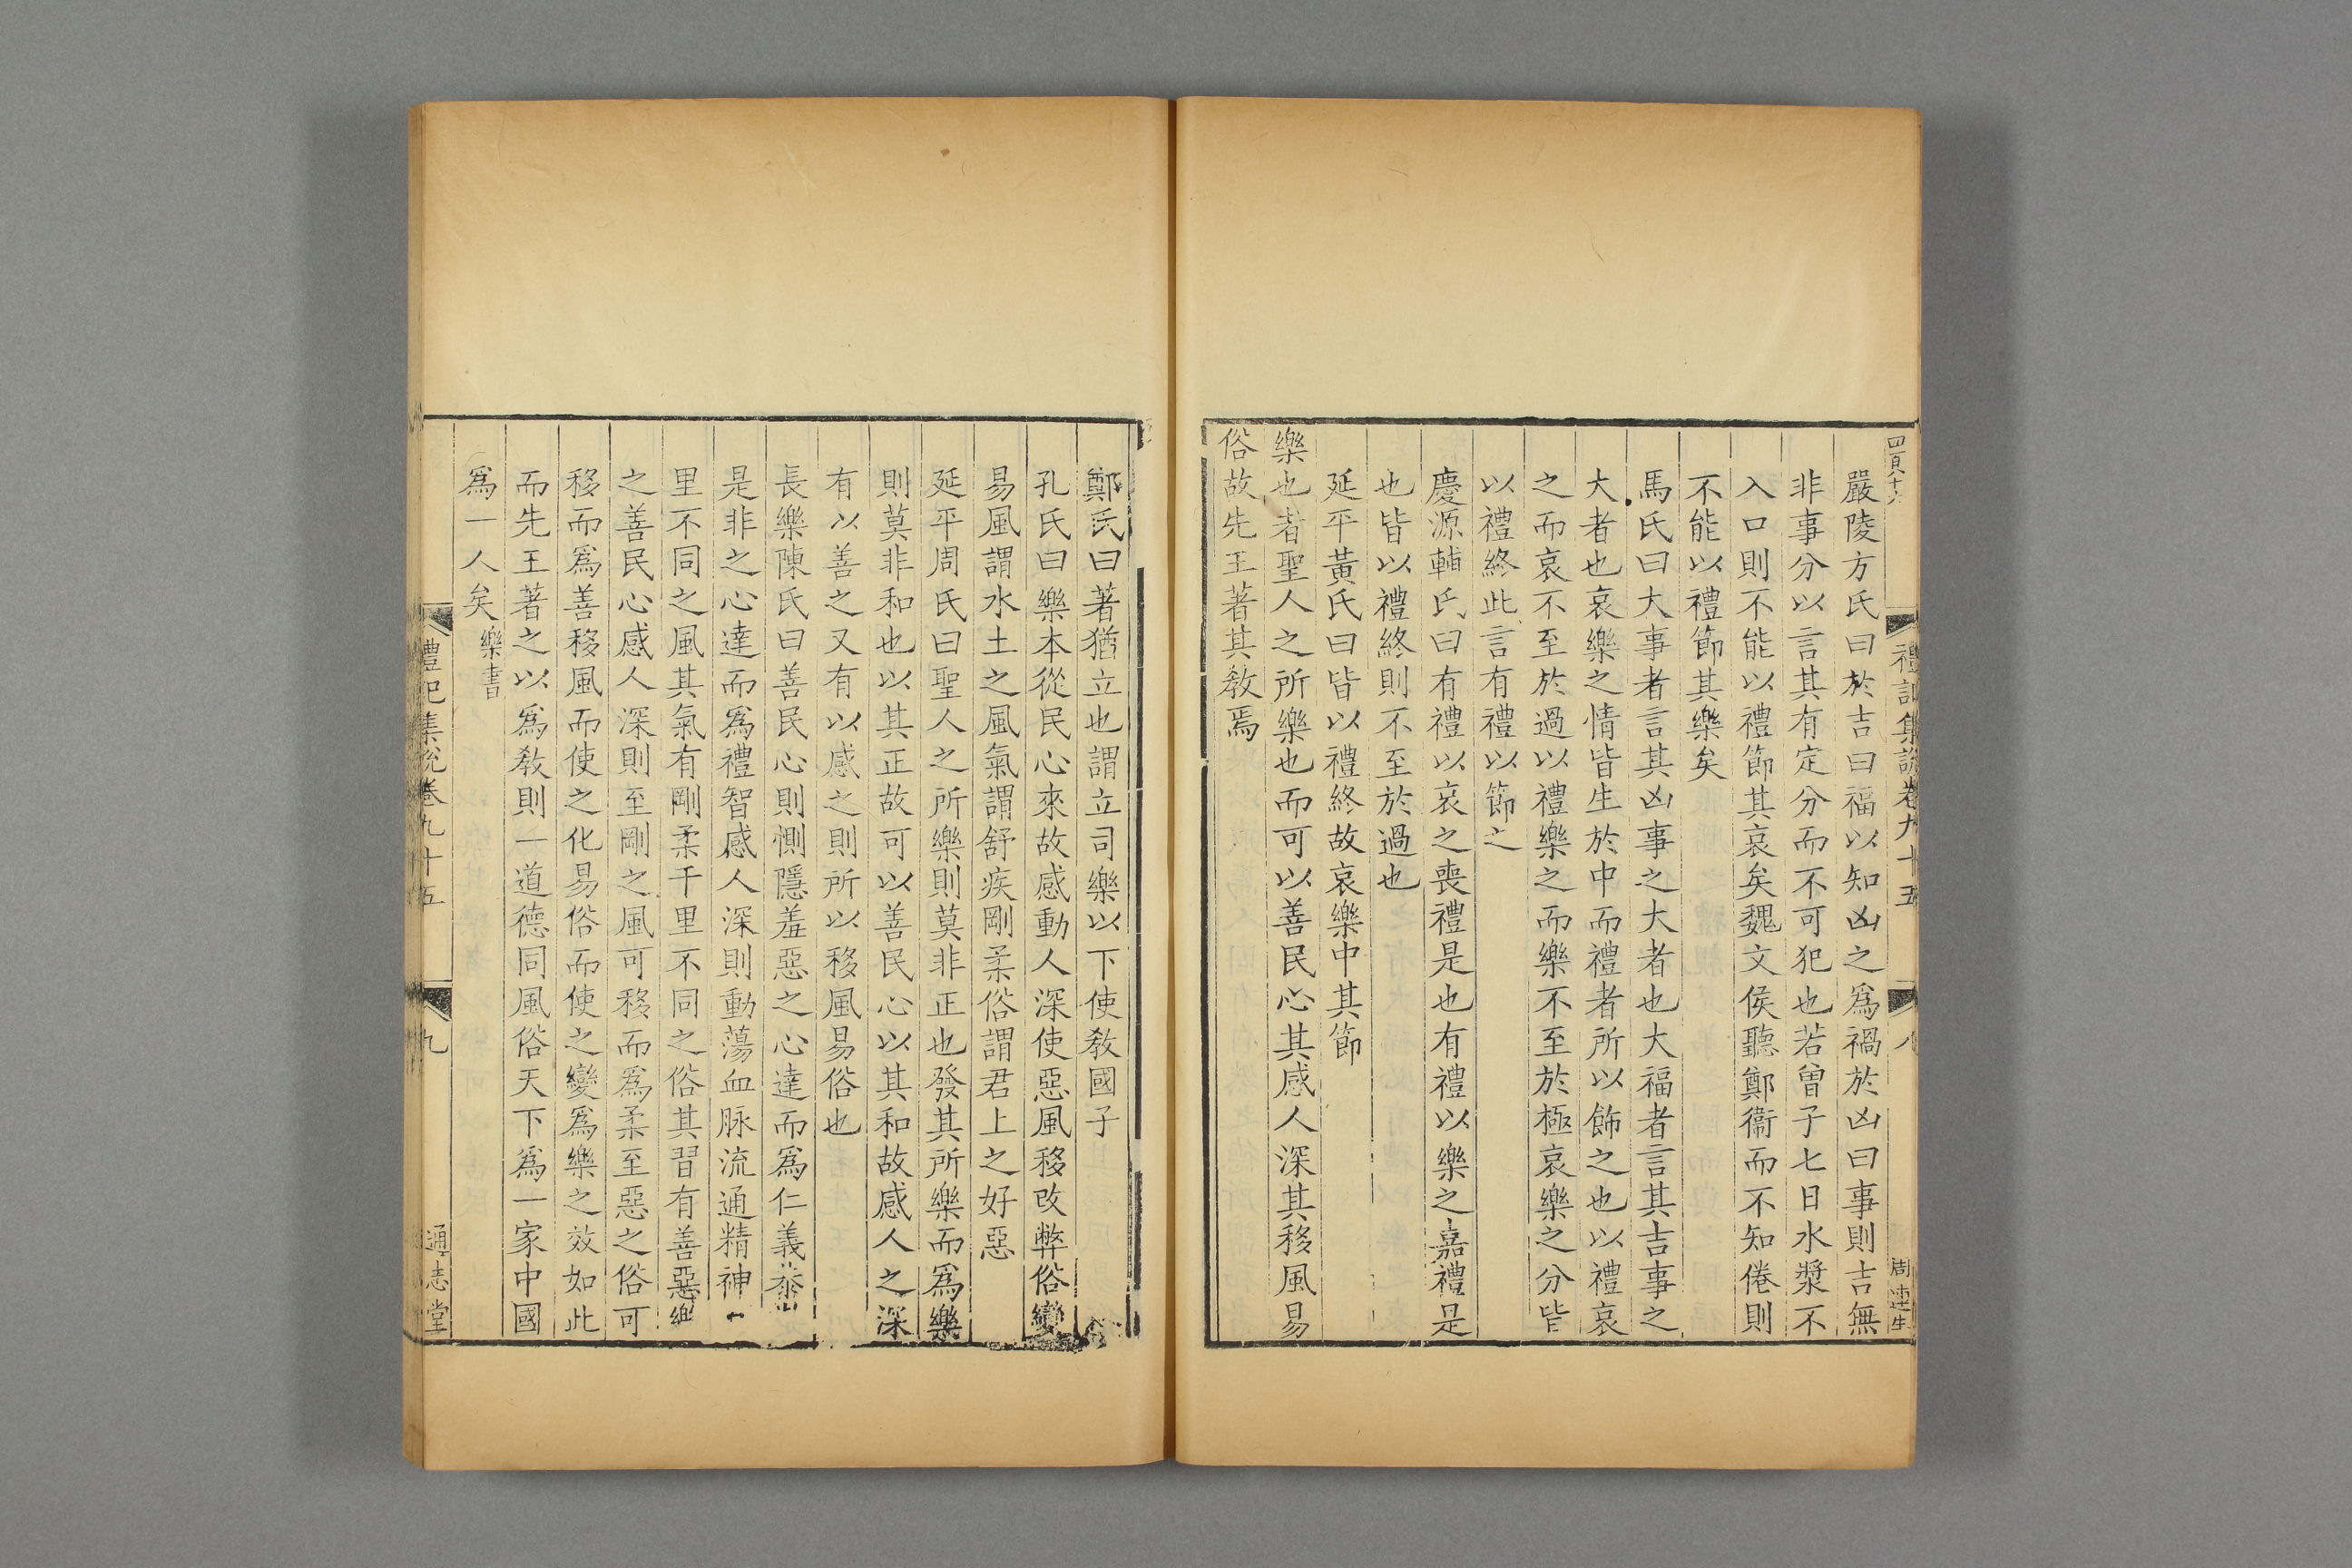 禮記集說卷九十五 八 周連生
嚴陵方氏曰於吉曰福以知凶之爲禍於凶曰事則吉無
非事分以言其有定分而不可犯也若曾子七日水漿不
入口則不能以禮節其哀矣魏文侯聽鄭衞而不知倦則
不能以禮節其樂矣
馬氏曰大事者言其凶事之大者也大福者言其吉事之
大者也哀樂之情皆生於中而禮者所以飾之也以禮哀
之而哀不至於過以禮樂之而樂不至於極哀樂之分皆
以禮終此言有禮以節之
慶源輔氏曰有禮以哀之喪禮是也有禮以樂之嘉禮是
也皆以禮終則不至於過也
延平黃氏曰皆以禮終故哀樂中其節
樂也者聖人之所樂也而可以善民心其感人深其移風易
俗故先王著其敎焉
鄭氏曰著猶立也謂立司樂以下使敎國子
孔氏曰樂本從民心來故感動人深使惡風移改弊俗變
易風謂水土之風氣謂舒疾剛柔俗謂君上之好惡
延平周氏曰聖人之所樂則莫非正也發其所樂而爲樂
則莫非和也以其正故可以善民心以其和故感人之深
有以善之又有以感之則所以移風易俗也
長樂陳氏曰善民心則惻隱羞惡之心達而爲仁義
是非之心達而爲禮智感人深則動蕩血脉流通精神
里不同之風其氣有剛柔千里不同之俗其習有善惡
之善民心感人深則至剛之風可移而爲柔至惡之俗可
移而爲善移風而使之化易俗而使之變爲樂之效如此
而先王著之以爲敎則一道德同風俗天下爲一家中國
爲一人矣 樂書
禮記集說卷九十五 九 通志堂